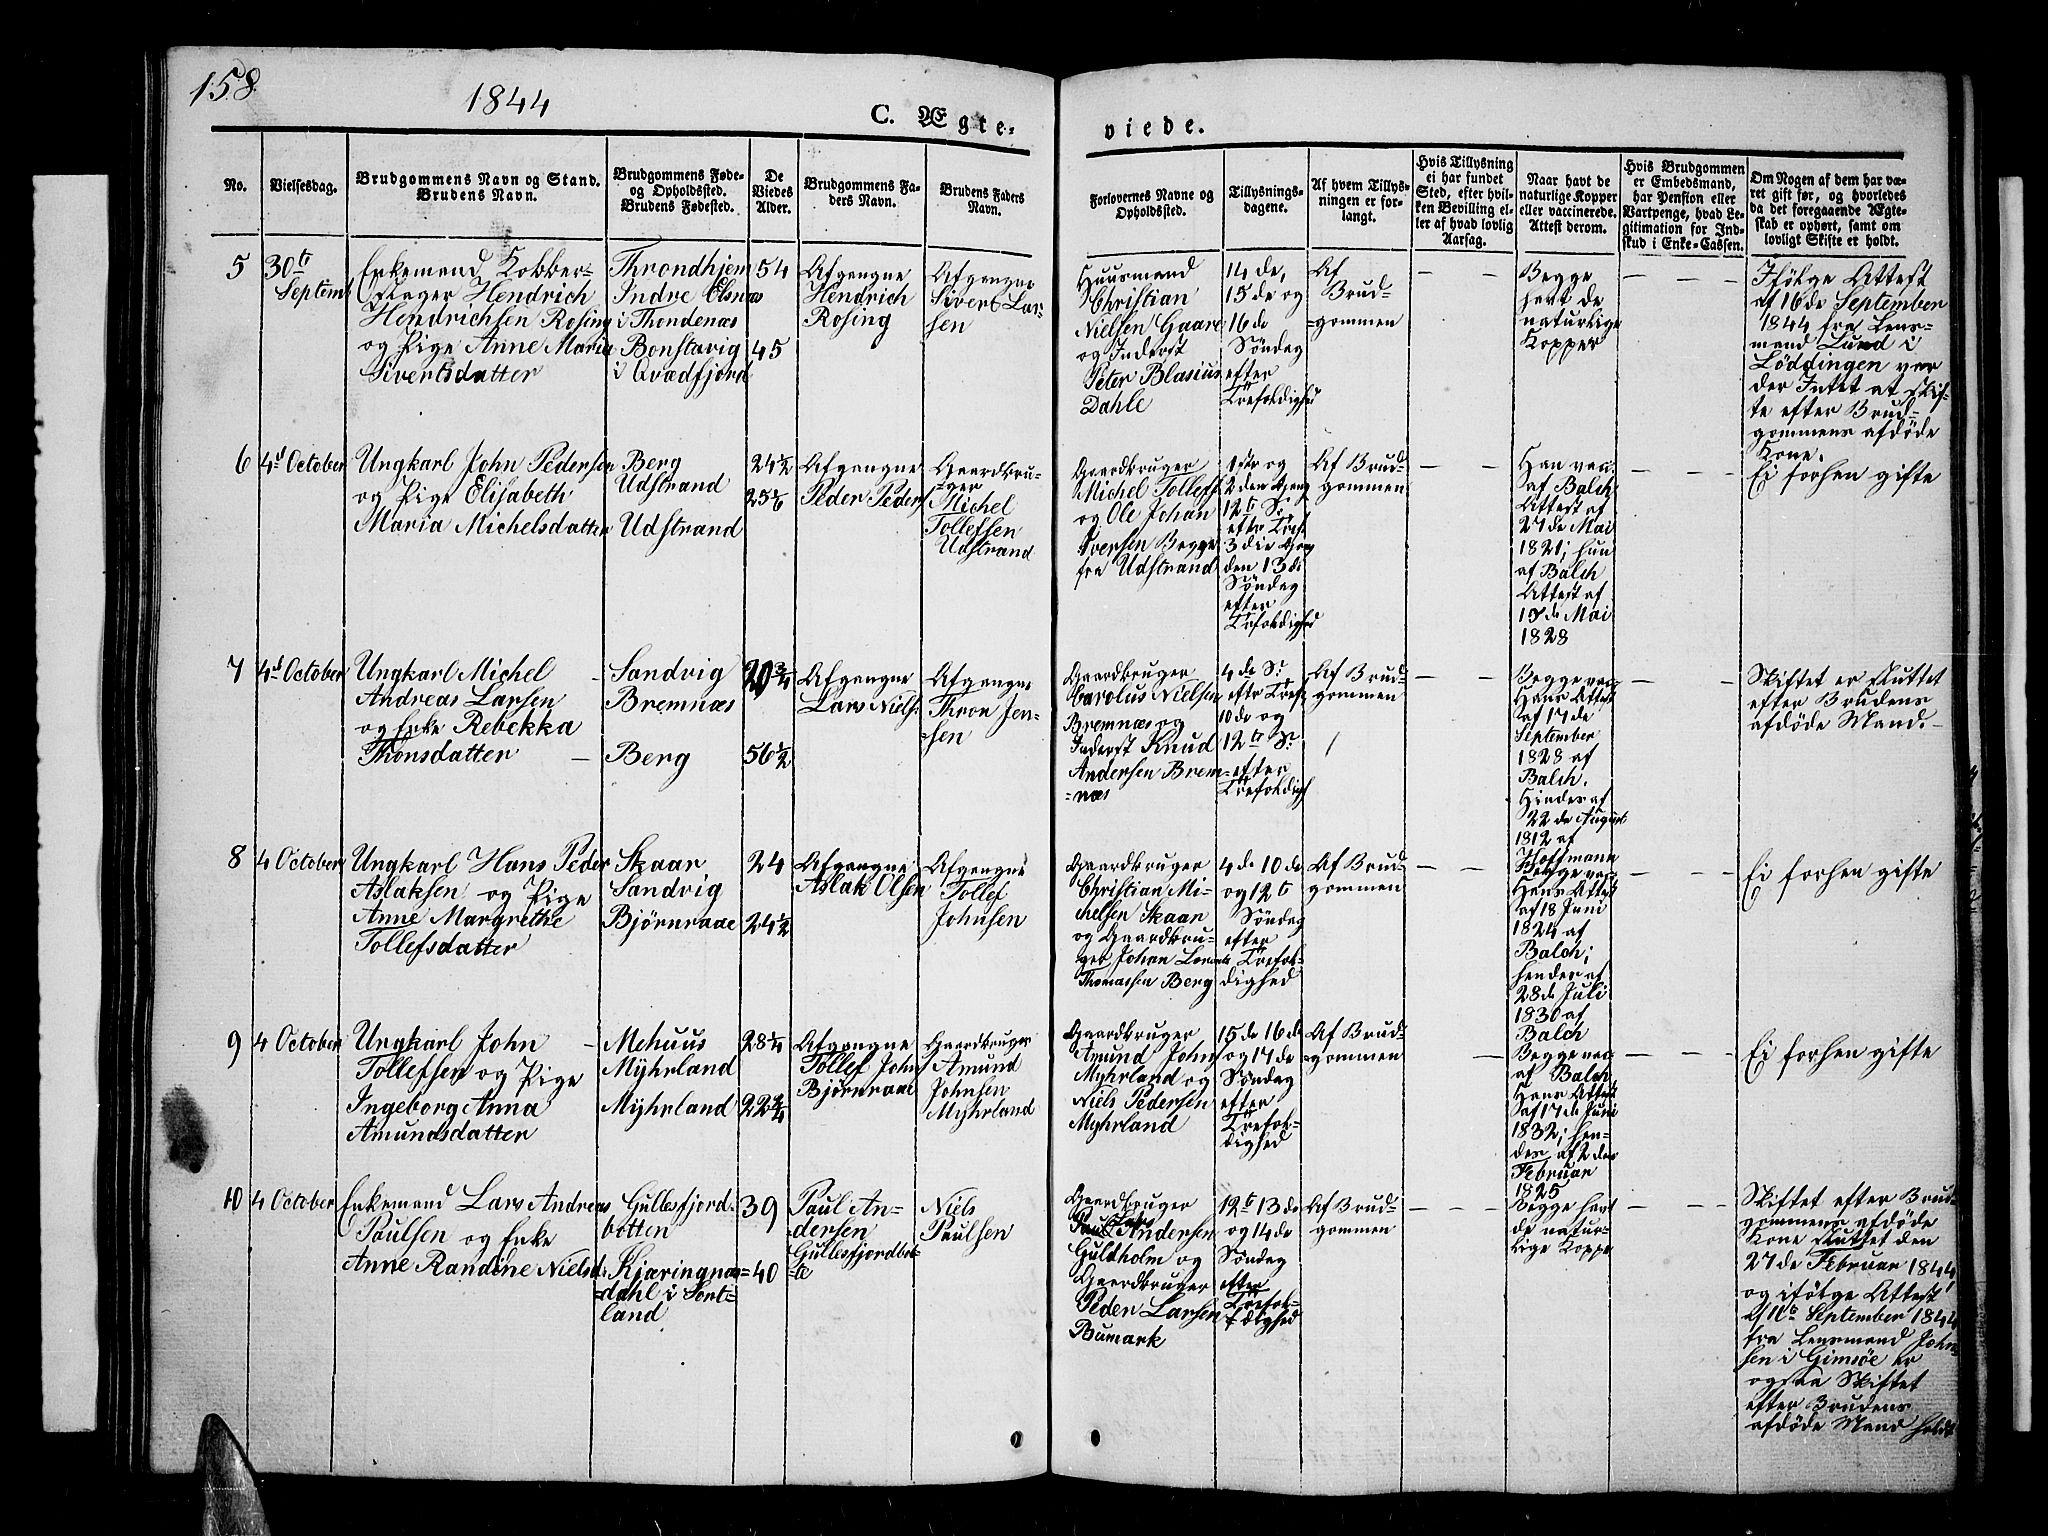 158
1844
C. Ægte-
viede.
No.
Vielsesdag.
Brudgommens Navn og Stand.
Brudens Navn.
Brudgommens Føde-
og Opholdssted.
Brudens Fødested.
De
Viedes
Alder.
Brudgommens Fa-
ders Navn.
Brudens Faders
Navn.
Forlovernes Navne og
Opholdssted.
Tillysnings-
dagene.
Af hvem Tillys-
ningen er for-
langt.
Hvis Tillysning
ei har fundet
Sted, efter hvil-
ken Bevilling el-
ler af hvad lovlig
Aarsag.
Naar havt de
naturlige Kopper
eller vaccinerede.
Attest derom.
Hvis Brudgommen
er Embedsmand,
har Pension eller
Vartpenge, hvad Le-
gitimation for Ind-
skud i Enke-Cassen.
Om Nogen af dem har væ-
ret gift før, og hvorledes
da det foregaaende Ægte-
skab er ophørt, samt om
lovligt Skifte er holdt.
5
30te
Septemb
Enkemand Kobber-
slager Hendrich
Hendrichsen Rosing
og Pige Anne Maria
Sivertsdatter
Throndhjem
Indre Elsnæs
i Thondenæs
Bonstavig
i Qvædfjord
54
45
Afgangne
Hendrich
Rosing
Afgangne
Sivert Lar-
sen
Huusmand
Christian
Nielsen Gaare
og Inderst
Peter Blasius
Dahle
14de,
15de og
16de
Søndag
efter
Trefoldighed
Af
Brud-
gommen
Begge
havt de
naturlige
Kopper
Ifølge Attest
af 16de September
1844 fra Lens-
mand Lund i
Löddingen var
der Intet at skif-
te efter Brud-
gommens afdöde
Kone.
6
4de October
Ungkarl John Pedersen
og Pige Elisabeth
Maria Michelsdatter
Berg
Udstrand
Udstrand
24½
Afgangne
Peder Peders
Gaardbru-
ger
Michel
Tollefsen
Udstrand
Gaardbruger
Michel Tollefs
og Ole Johan
Iversen Begge
fra Udstrand
1ste og
2den Gang
12te S.
eftr Tref.
3die Gang
den 13de
Søndag
efter
Trefoldighed
Af Brud-
gommen
Han vac.
af Balch
Attest af
27de Mai
1821; hun
af Balch
Attest af
17de Mai
1828
Ei forhen gifte
7
4de October
Ungkarl Michel
Andreas Larsen
og Enke Rebekka
Thonsdatter
Sandvig
Bremnæs
Berg
20¾
56½
Afgangne
Lars Niels.
Afgangne
Thron Jen-
sen
Gaardbruger
Carolus Nielsen
Bremnæs og
Inderst Knud
Andersen Brem-
næs
4de S.
eftr Tref.
10de og
12te S.
efter
Trefoldigh
Af Brud-
gommen
Begge vac.
Hans Attest
af 17de
September
1828 af
Balch.
Hindes af
22de August
1812 af
Hoffmann
Skiftet er sluttet
efter Brudens
afdøde Mand.
8
4 October
Ungkarl Hans Peder
Aslaksen og Pige
Anne Margrethe
Tollefsdatter
Skaar
Sandvig
Bjørnraae
24
24½
Afgangne
Aslak Olsen
Afgangne
Tollef
Johnsen
Gaardbruger
Christian Mi-
chelsen Skaar
og Gaardbru-
ger Johan Lorents
Thomassen Berg
4de 10de
og 12te
Søndag
efter
Trefol-
dighed
Af Brud-
gommen
Begge vac.
Hans Attest
af 18 Juni
1824 af
Balch;
hendes af
28de Juli
1830 af
Balch
Ei forhen gifte
9
4 October
Ungkarl John
Tollefsen og Pige
Ingeborg Anna
Amundsdatter
Mehuus
Myhrland
Myhrland
28¼
22¾
Afgangne
Tollef Johns
Bjørnraae
Gaardbruger
Amund
Johnsen
Myhrland
Gaardbruger
Amund Johns
Myhrland og
Niels Pedersen
Myhrland
15de 16de
og 17de
Søndag
efter
Trefol-
dighed
Af Brud-
gommen
Begge vac.
af Balch
Hans Attest
af 17de Juni
1832; hen-
des af 2den
Februar
1825
Ei forhen gifte
10
4 October
Enkemand Lars Andreas
Paulsen og Enke
Anne Randine Nielsd.
Gullesfjord-
botten
Kjæringnæs-
dahl i Sort-
land
39
40
Paul An-
dersen
Gullesfjordbot-
te
Niels
Paulsen
Gaardbruger
Andersen
Guldholm og
Gaardbruger
Peder Larsen
Bumark
12te 13de
og 14de
Søndag
efter
Trefol-
dighed
Af Brud-
gommen
Begge havt
de natur-
lige Kopper
Skiftet efter Brud-
gommens afdöde
Kone sluttet den
27de Februar 1844
og ifölge Attest
af 10de September 1844
fra Lensmand John-
sen i Gimsøe er
ogsaa Skiftet
efter Brudens
afdöde Mand holdt